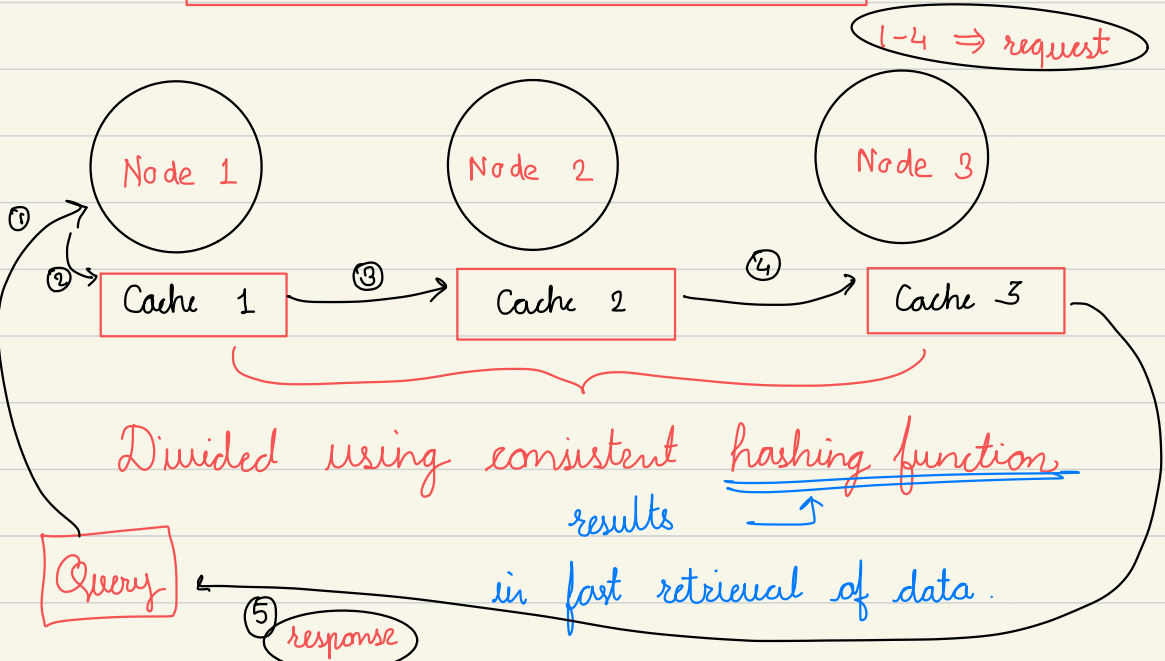 1-4 ⇒ request
Node 1
Node 2
Node 3
①
②
③
④
Cache 1
Cache 2
Cache 3
Divided using consistent hashing function
results
in fast retrieval of data.
Query
⑤
response